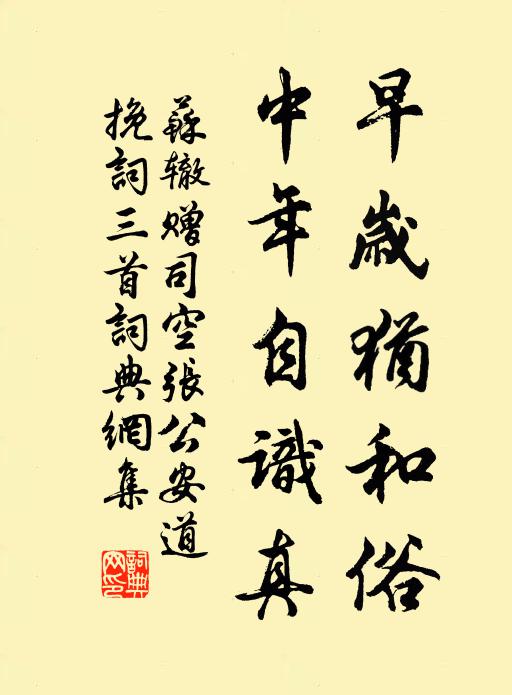 早歲猶和俗
中年自識真
蘇辙贈司空張公安道
挽詞三首詞典網集
詞典網印